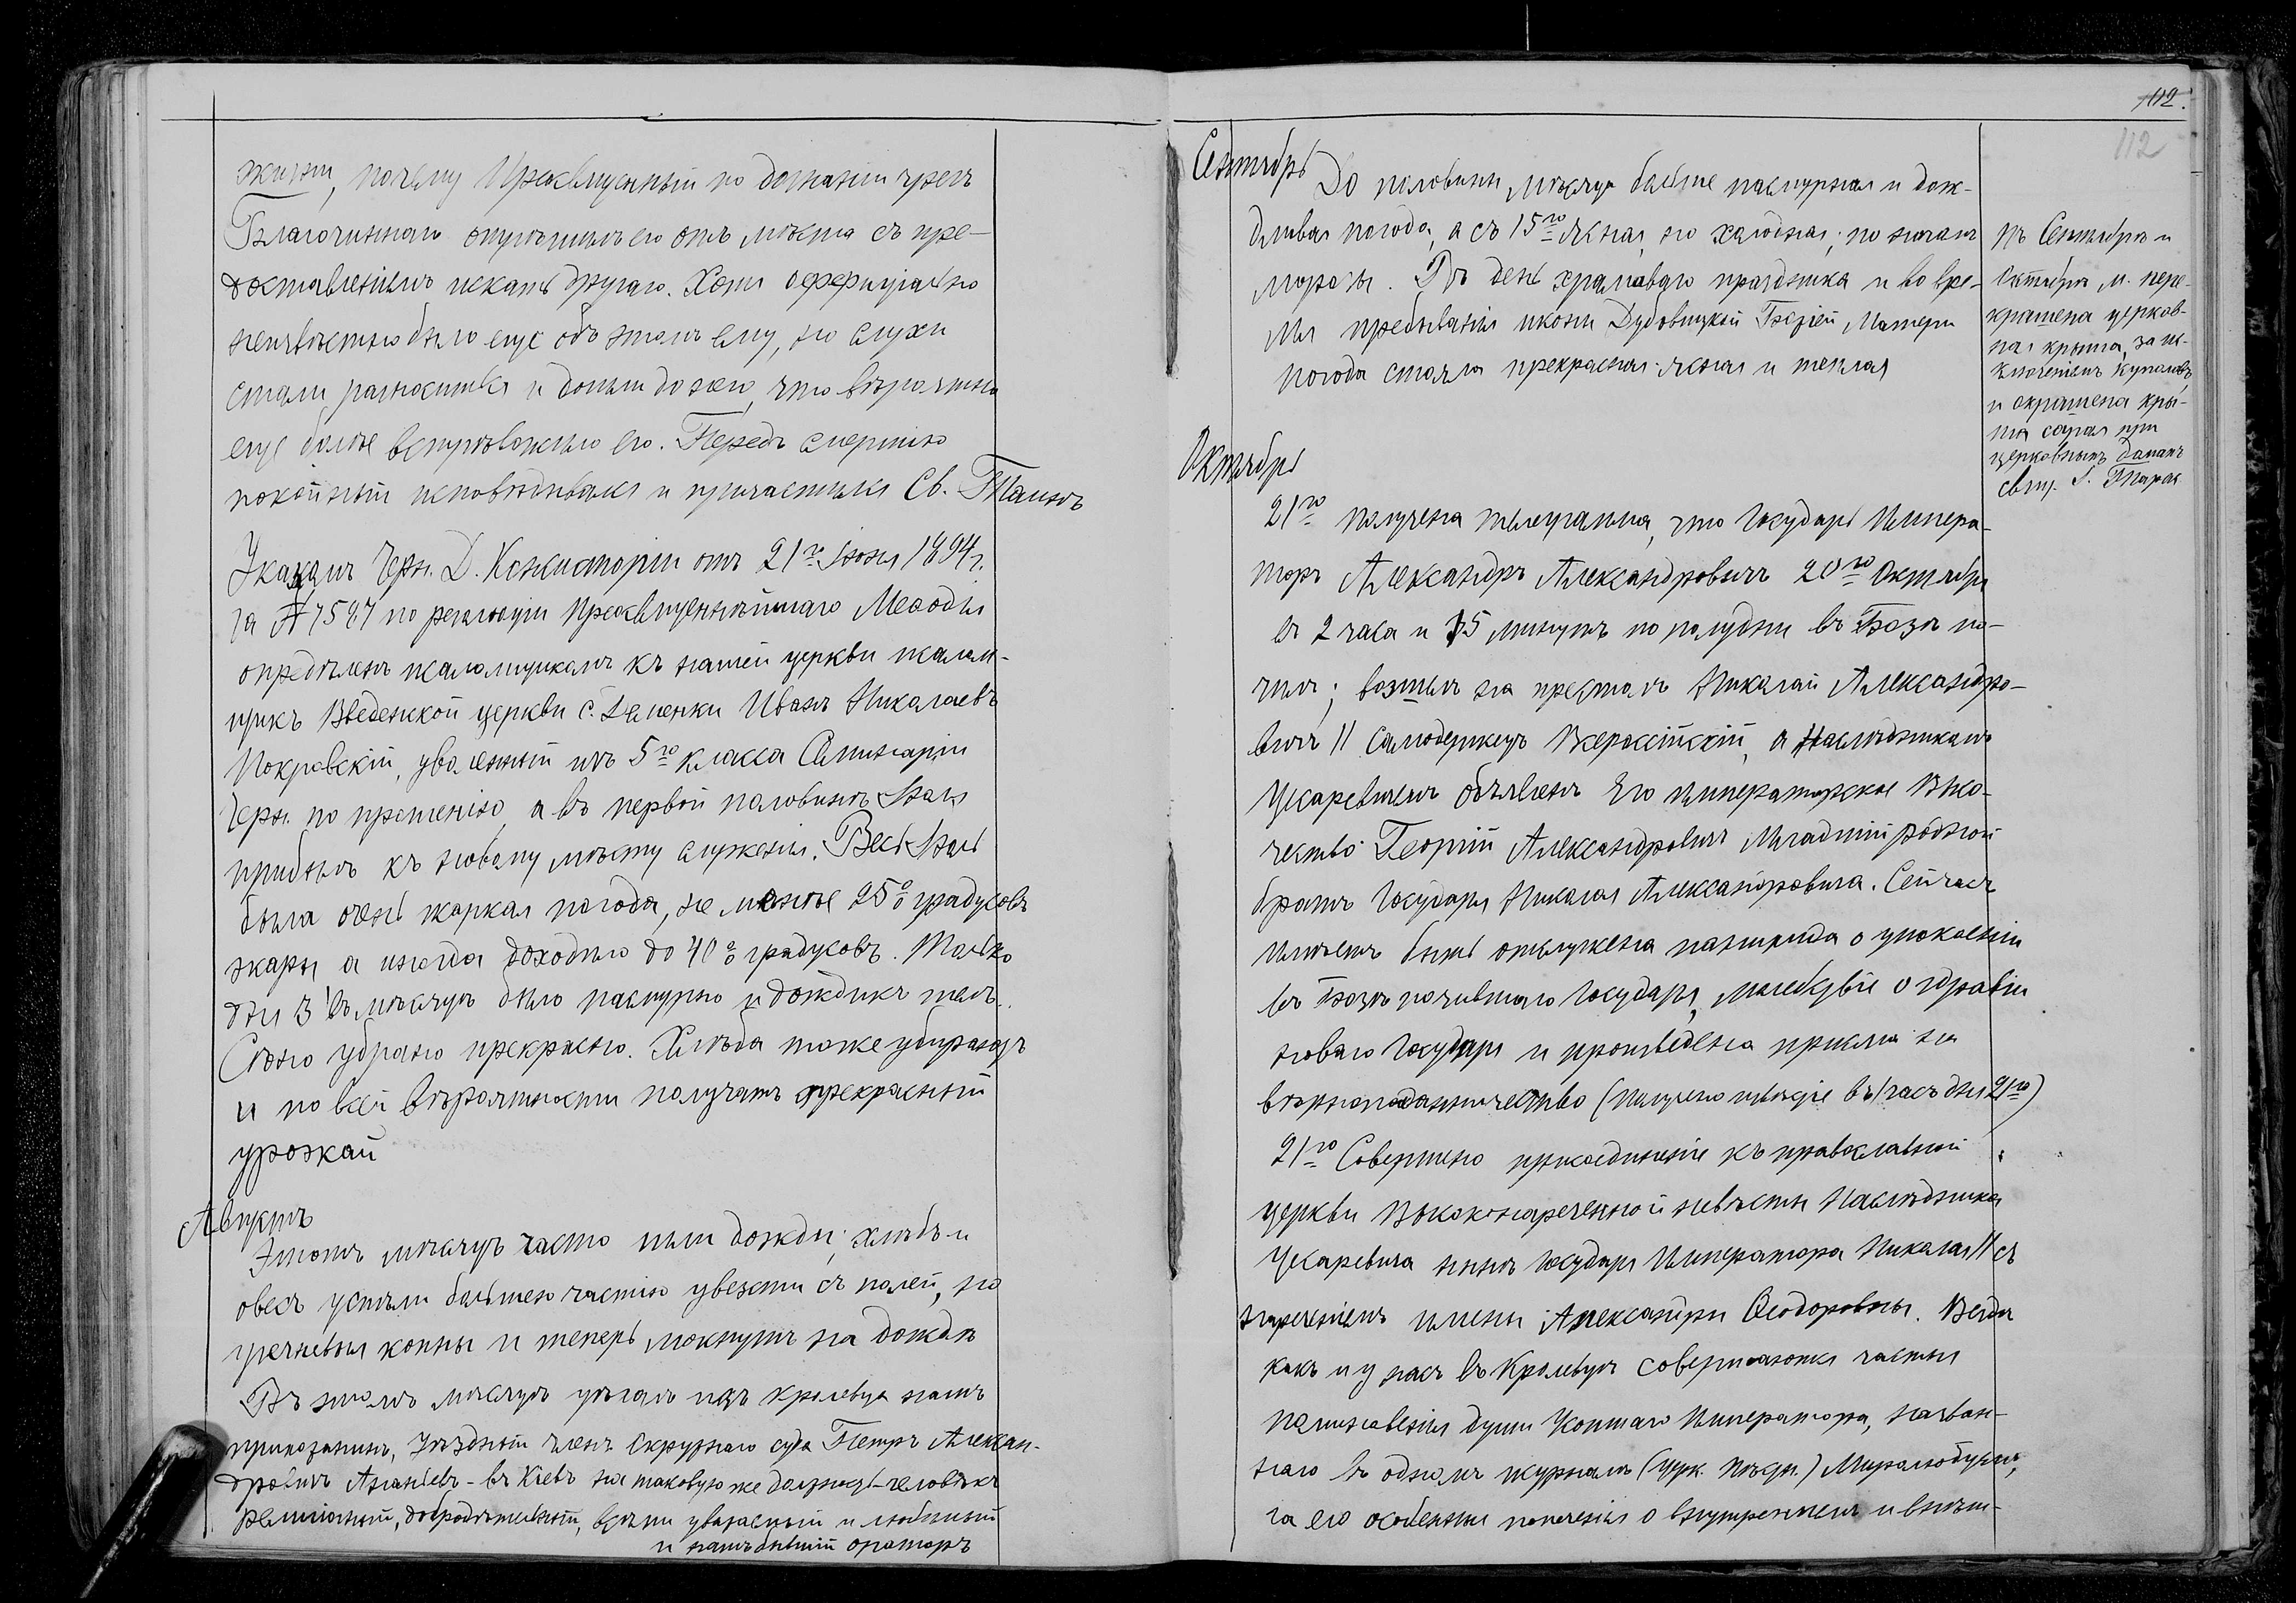 жизни, почему Преосвященный по дознаніи чрезъ
Благочиннаго отрѣшилъ его отъ мѣста съ пре-
доставленіемъ искать другаго. Хотя оффиціально
неизвѣстно было еще объ этомъ ему, но слухи
стали разноситься и дошли до него, что вѣроятно
еще болѣе встревожило его. Передъ смертію
покойный исповѣдывался и причастился Св. Таинъ
Указомъ Черн. Д. Консисторіи отъ 21го Іюня 1894 г.
за № 7587 по резолюціи Преосвященнѣйшаго Меѳодія
опредѣленъ псаломщикомъ къ нашей церкви псалом-
щикъ Введенской церкви с. Иванъ Николаевъ
Покровскій, уволенный изъ 5го класса Семинаріи
Черн. по прошенію, а въ первой половинѣ Іюля
прибылъ къ новому мѣсту служенія. Весь Іюль
была очень жаркая погода, не менѣе 25° градусовъ
жары а иногда доходило до 40° градусовъ. Только
дня 3 въ мѣсяцѣ было пасмурно и дождикъ шелъ.
Сѣно убрано прекрасно. Хлѣба тоже убираютъ
и по всей вѣроятности получатъ прекрасный
урожай
Августъ
Этотъ мѣсяцъ часто шли дожди; хлѣбъ и
овесъ успѣли большею частію увезти съ полей, но
гречневыя копны и теперь мокнутъ на дождѣ
Въ этомъ мѣсяцѣ уѣхалъ изъ Кролевца нашъ
прихожанинъ, Уѣздный членъ Окружнаго суда Петръ Алексан-
дровичъ Ананьевъ - въ Кіевъ на таковую же должность - человѣкъ
религіозный, добродѣтельный, всѣми уважаемый и любимый
и нашъ бывшій ораторъ
112.
112
Сентябрь
До половины мѣсяца бывше пасмурная и дож-
дливая погода, а съ 15го ясная, но холодная; по ночамъ
морозы. Въ день храмоваго праздника и во вре-
мя пребыванія иконы Дубовицкой Божіей Матери
погода стояла прекрасная: ясная и теплая
Въ Сентябрѣ и
Октябрѣ м. пере-
крашена церков-
ная крыша, за ис-
ключеніемъ куполовъ,
и окрашена кры-
ша сарая при
церковныхъ домахъ
свящ. І. Тарас
Октябрь
21го Получена телеграмма, что Государь Импера-
торъ Александръ Александровичъ 20го Октября
въ 2 часа и 15 минутъ по полудни въ Бозѣ по-
чилъ; возшелъ на престолъ Николай Александро-
вичъ II Самодержецъ Всероссійскій, а Наслѣдникомъ
Цесаревичемъ объявленъ Его Императорское Высо-
чество Георгій Александровичъ младшій родной
братъ Государя Николая Александровича. Сейчасъ
имѣетъ быть отслужена паннихида о упокоеніи
въ Бозѣ почившаго Государя, молебствіе о здравіи
новаго Государя и произведена присяга на
вѣрноподданничество (Получено извѣстіе въ 1 часъ дня 21го)
21го Совершено присоединеніе къ православной
церкви Высоконареченной невѣсты Наслѣдника
Цесаревича нынѣ Государя Императора Николая II съ
нареченіемъ имени Александры Ѳеодоровны. Вездѣ
какъ и у насъ въ Кролевцѣ совершаются частыя
поминовенія души Усопшаго Императора, назван-
наго въ одномъ журналѣ (Церк. Вѣстн.) Миролюбцемъ,
за его особенныя попеченія о внутреннемъ и внѣш-